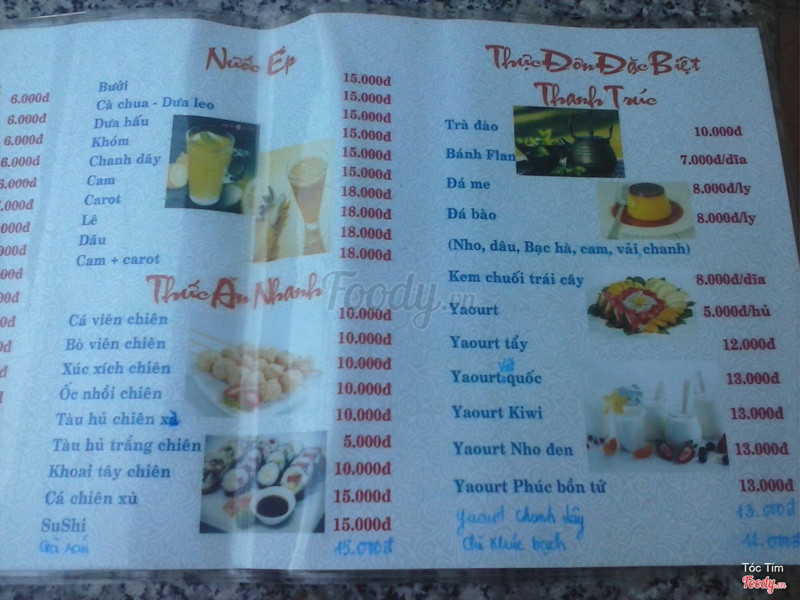 6.000đ
6.000đ
6.000đ
6.000đ
Nước Ép
Bưởi 15.000đ
Cà chua - Dưa leo 15.000đ
Dưa hấu 15.000đ
Khóm 15.000đ
Chanh dây 15.000đ
Cam 15.000đ
Carot 18.000đ
Lê 18.000đ
Dâu 18.000đ
Cam + carot 18.000đ
Thức Ăn Nhanh
Cá viên chiên 10.000đ
Bò viên chiên 10.000đ
Xúc xích chiên 10.000đ
Ốc nhồi chiên 10.000đ
Tàu hủ chiên xả 10.000đ
Tàu hủ trắng chiên 5.000đ
Khoai tây chiên 10.000đ
Cá chiên xù 15.000đ
SuShi 15.000đ
15.000đ
Thực Đơn Đặc Biệt
Thanh Trúc
Trà đào 10.000đ
Bánh Flan 7.000đ/dĩa
Đá me 8.000đ/ly
Đá bào 8.000đ/ly
(Nho, dâu, Bạc hà, cam, vải, chanh)
Kem chuối trái cây 8.000đ/dĩa
Yaourt 5.000đ/hủ
Yaourt tẩy 12.000đ
Yaourt việt quốc 13.000đ
Yaourt Kiwi 13.000đ
Yaourt Nho đen 13.000đ
Yaourt Phúc bồn tử 13.000đ
Yaourt chanh dây 13.000đ
Chè khúc bạch 12.000đ
Foody.vn
Tóc Tím
Foody.vn